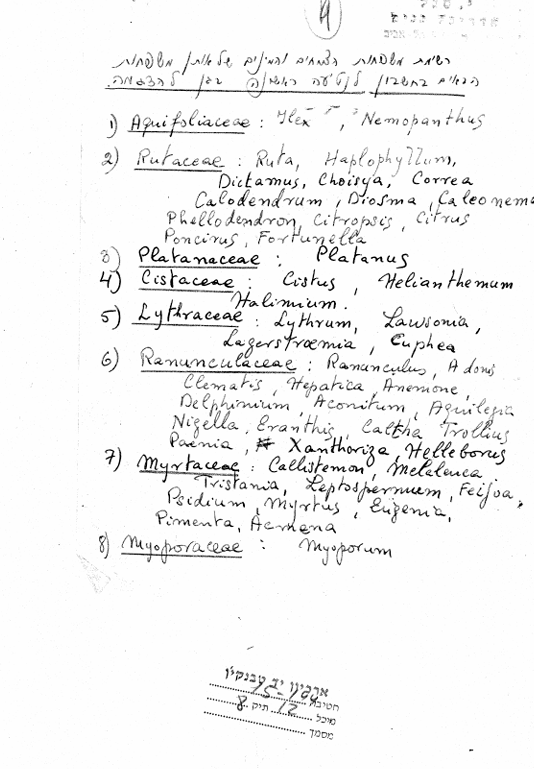 4
רשימת משפחות הצמחים והמינים של אותן משפחות
הבאים בחשבון לנטיעה ראשונה בגן להדגמה.
1) Aquifoliaceae : Ilex , Nemopanthus
2) Rutaceae : Ruta, Haplophyllum,
Dictamus, Choisya, Correa
Calodendrum, Diosma, Caleonema
Phellodendron, Citropsis, Citrus
Poncirus, Fortunella
3) Platanaceae : Platanus
4) Cistaceae : Cistus, Helianthemum
Halimium.
5) Lythraceae : Lythrum, Lawsonia,
Lagerstroemia, Cuphea
6) Ranunculaceae : Ranunculus, Adonis
Clematis, Hepatica, Anemone,
Delphinium, Aconitum, Aquilegia
Nigella, Eranthis, Caltha Trollius
Paenia, Xanthoriza, Helleborus
7) Myrtaceae : Callistemon, Melaleuca
Tristania, Leptospermum, Feijoa,
Psidium, Myrtus, Eugenia,
Pimenta, Acmena
8) Myoporaceae : Myoporum
ארכיון יד טבנקין
חטיבה 15-
מיכל 12 תיק 8
מסמך